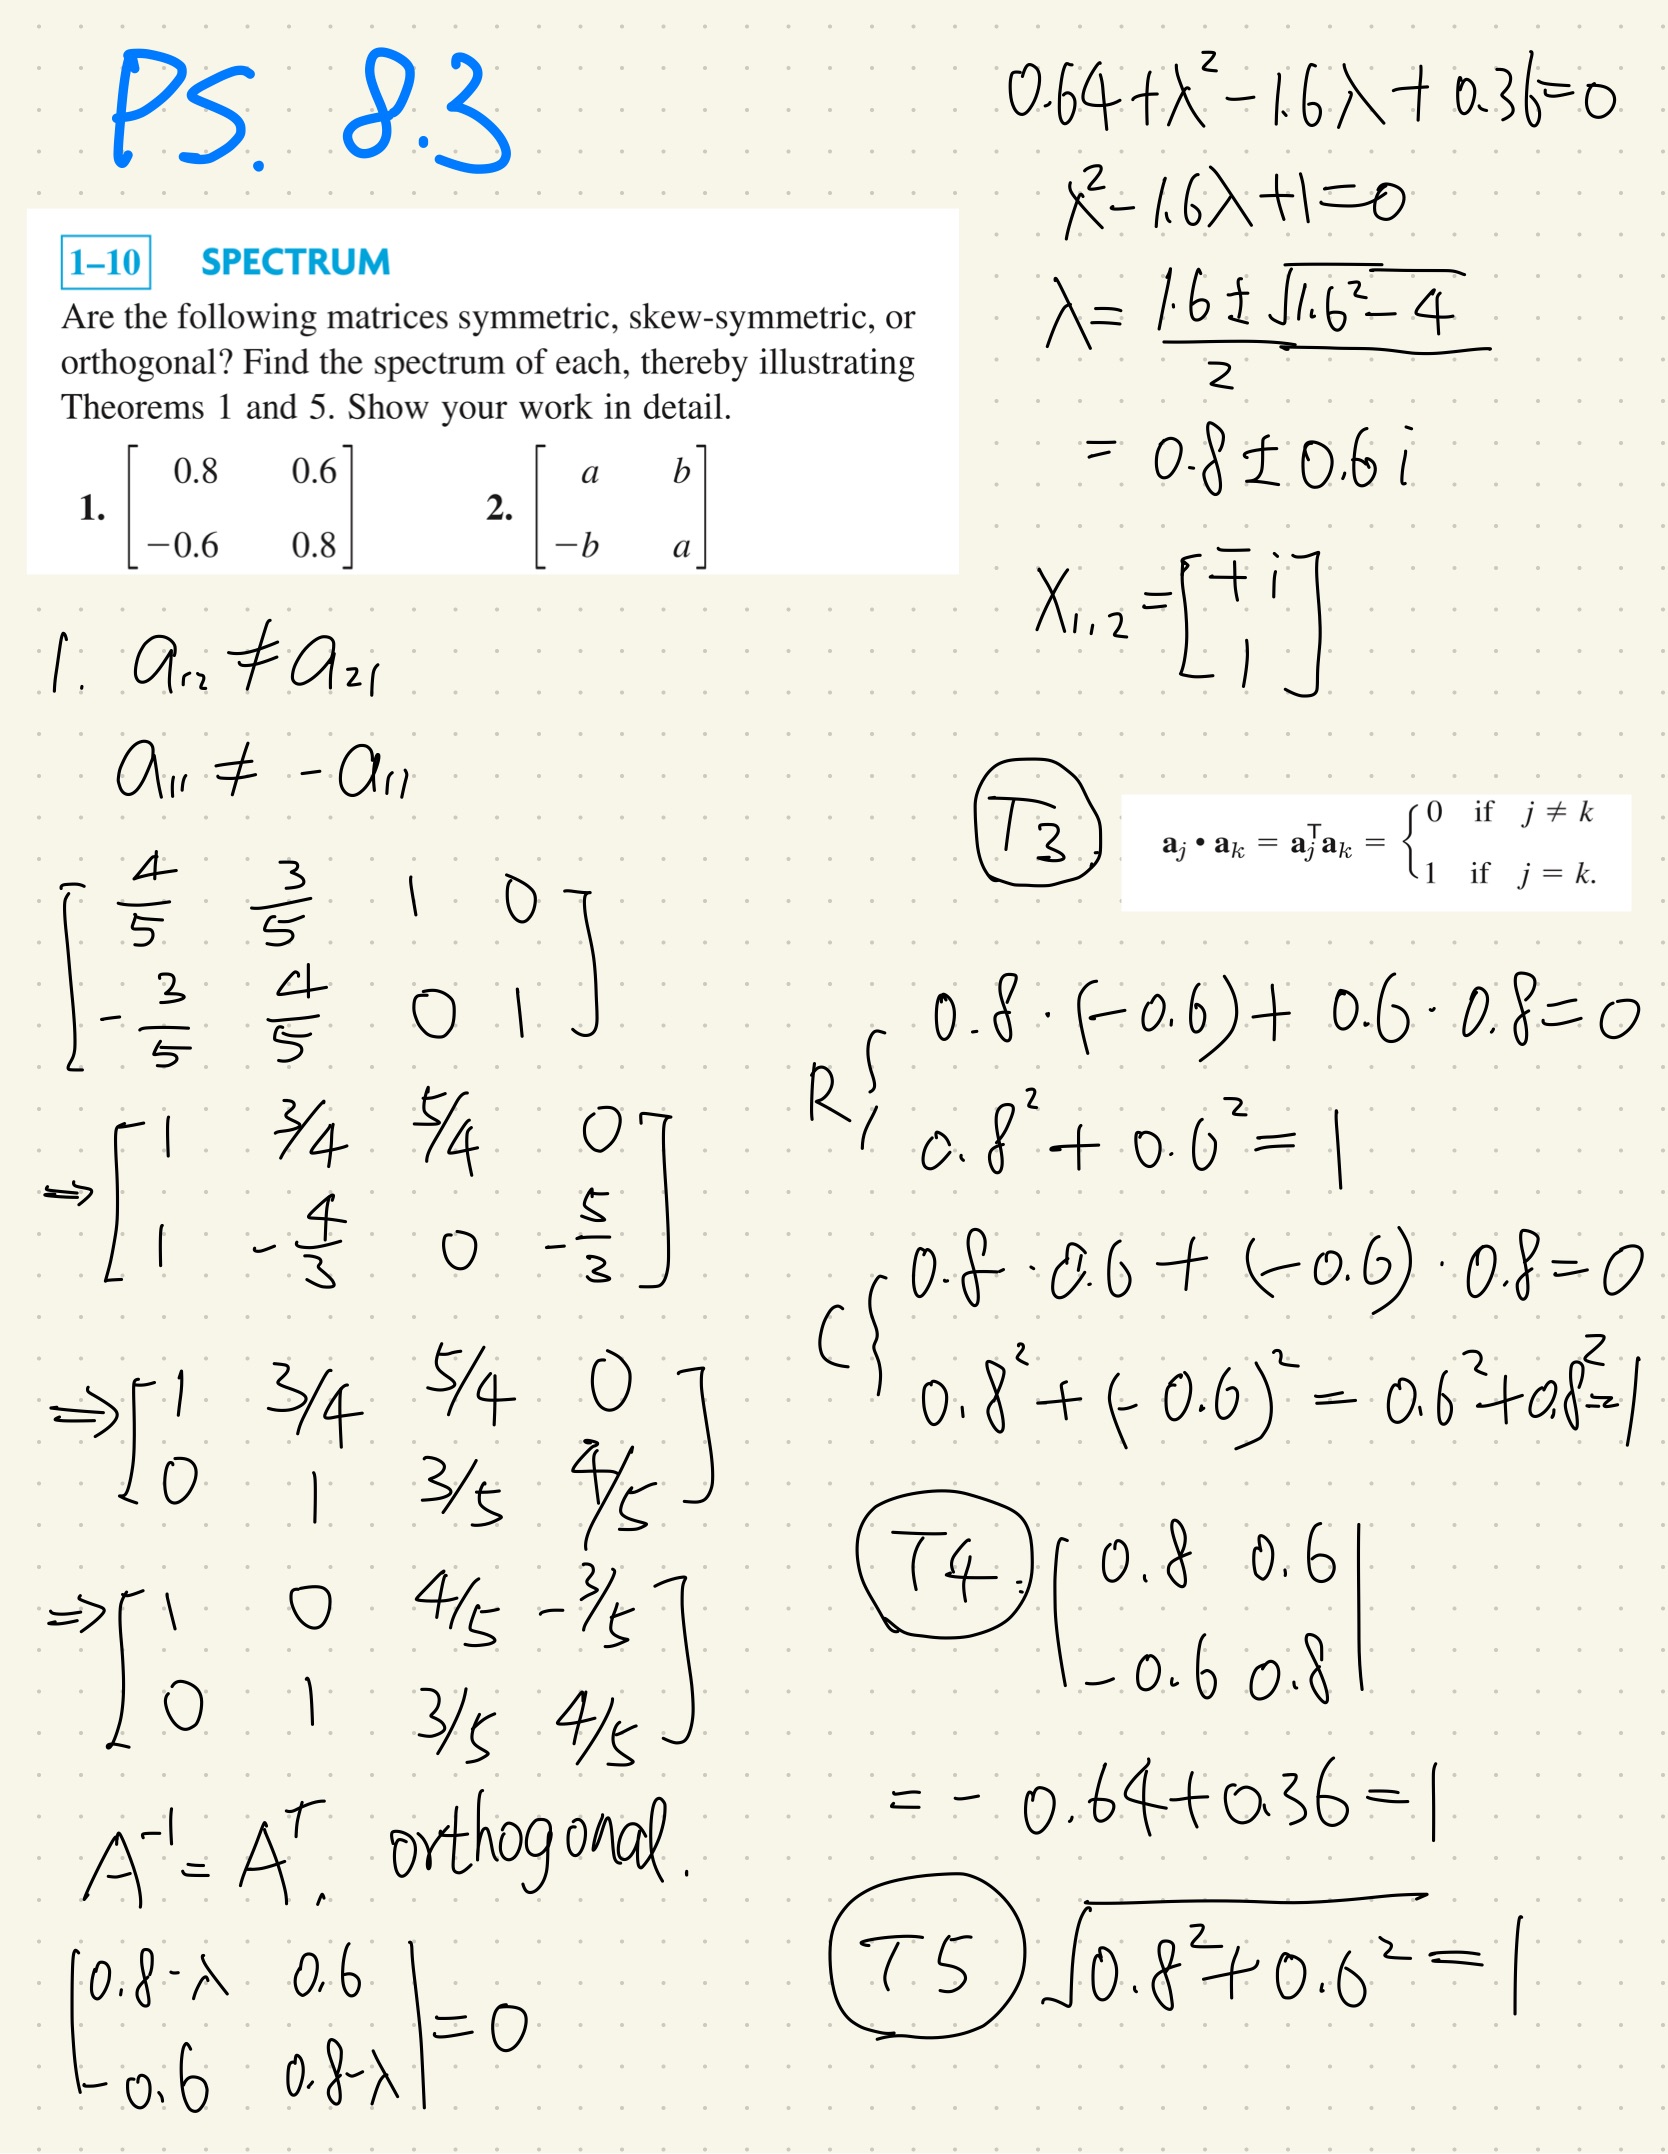 PS. 8.3
1–10 SPECTRUM
Are the following matrices symmetric, skew-symmetric, or
orthogonal? Find the spectrum of each, thereby illustrating
Theorems 1 and 5. Show your work in detail.
1. [ 0.8 0.6
−0.6 0.8 ]
2. [ a b
−b a ]
1. a₁₂ ≠ a₂₁
a₁₁ ≠ - a₁₁
[ 4/5 3/5 1 0
- 3/5 4/5 0 1 ]
⇒ [ 1 3/4 5/4 0
1 - 4/3 0 - 5/3 ]
⇒ [ 1 3/4 5/4 0
0 1 3/5 4/5 ]
⇒ [ 1 0 4/5 - 3/5
0 1 3/5 4/5 ]
A⁻¹ = Aᵀ. orthogonal.
| 0.8-λ 0.6
-0.6 0.8-λ | = 0
0.64 + λ² - 1.6λ + 0.36 = 0
λ² - 1.6λ + 1 = 0
λ = (1.6 ± √(1.6² - 4)) / 2
= 0.8 ± 0.6 i
X₁,₂ = [ ∓ i
1 ]
T3. aⱼ • aₖ = aⱼᵀaₖ = { 0 if j ≠ k
1 if j = k.
R { 0.8 · (-0.6) + 0.6 · 0.8 = 0
0.8² + 0.6² = 1
C { 0.8 · 0.6 + (-0.6) · 0.8 = 0
0.8² + (-0.6)² = 0.6² + 0.8² = 1
T4: | 0.8 0.6
-0.6 0.8 |
= - 0.64 + 0.36 = 1
T5 √(0.8² + 0.6²) = 1